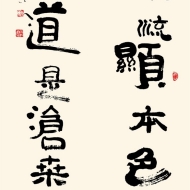 流顯本色
道是滄桑